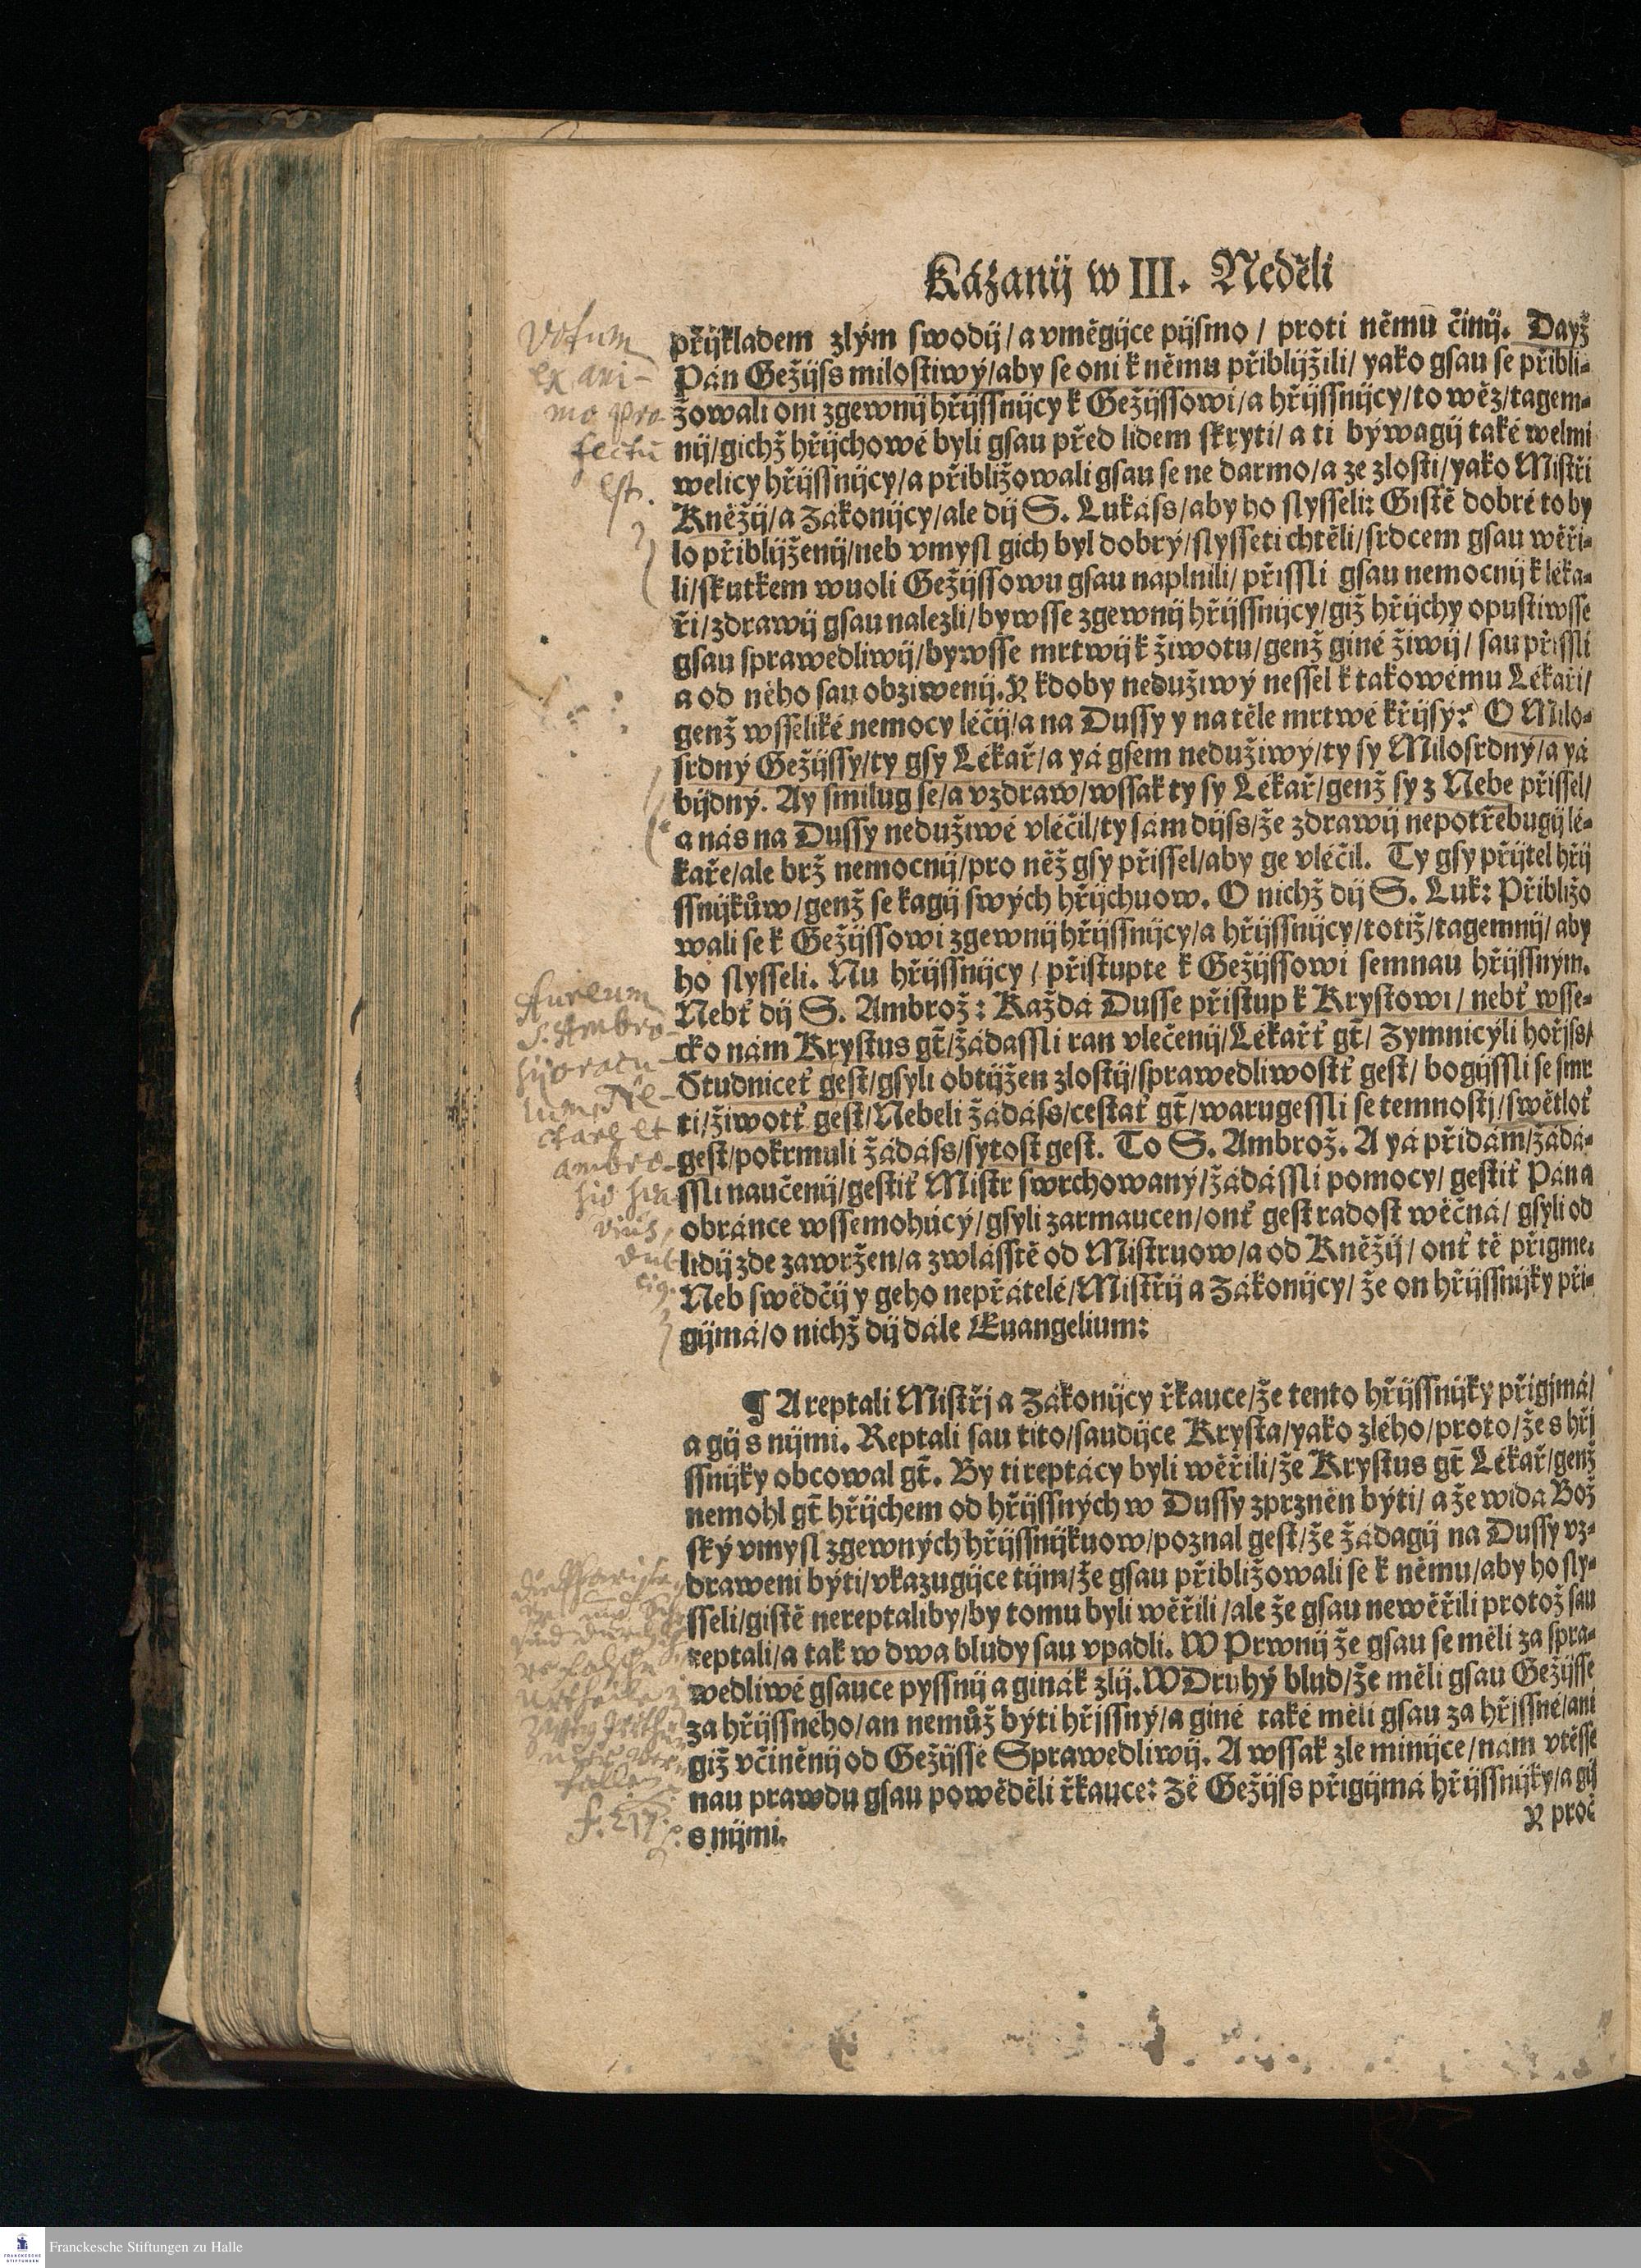 Kázanij w III. Neděli
přijkladem zlým swodij/a vměgijce pijsmo/ proti němu činij. Dayž
Pán Gežijss milostiwý/aby se oni k němu přiblijžili/ yako gsau se přibli-
žowali oni zgewnij hřijssnijcy k Gežijssowi/a hřijssnijcy/to wěz/tagem-
nij/gichž hřijchowé byli gsau před lidem skryti/ a ti býwagij také welmi
welicy hřijssnijcy/a přibližowali gsau se ne darmo/a ze zlosti/yako Mistři
Kněžij/a Zákonijcy/ale dij S. Lukáss/aby ho slysseli: Gistě dobré to by
lo přiblijženij/neb vmysl gich byl dobrý/slysseti chtěli/srdcem gsau wěři-
li/skutkem wuoli Gežijssowu gsau naplnili/ přissli gsau nemocnij k léka-
ři/zdrawij gsau nalezli/bywsse zgewnij hřijssnijcy/giž hřijchy opustiwsse
gsau sprawedliwij/bywsse mrtwij k žiwotu/genž giné žiwij/ sau přissli
a od něho sau obžiwenij. Y kdoby nedužiwý nessel k takowému Lékaři/
genž wsseliké nemocy léčij/a na Dussy y na těle mrtwé křijsý? O Milo-
srdný Gežijssy/ty gsy Lékař/a yá gsem nedužiwý/ty sy Milosrdný/a yá
bijdný. Ay smilug se/a vzdraw/wssak ty sy Lékař/genž sy z Nebe přissel/
a nás na Dussy nedužiwé vléčil/ty sám dijss/že zdrawij nepotřebugij lé-
kaře/ale brž nemocnij/pro něž gsy přissel/aby ge vléčil. Ty gsy přijtel hřij
ssnijkůw/genž se kagij swých hřijchuow. O nichž dij S. Luk: Přibližo
wali se k Gežijssowi zgewnij hřijssnijcy/a hřijssnijcy/totiž/tagemnij/ aby
ho slysseli. Nu hřijssnijcy/ přistupte k Gežijssowi semnau hřijssným.
Nebť dij S. Ambrož: Každá Dusse přistup k Krystowi/ nebť wsse-
cko nám Krystus gt̃/žádassli ran vlečenij/Lékařť gt̃/ Zymnicýli hořjss/
Studniceť gest/gsyli obtijžen zlostij/sprawedliwostť gest/ bogijssli se smr
ti/žiwotť gest/Nebeli žádáss/cestať gt̃/warugessli se temnostj/swětloť
gest/pokrmuli žádáss/sytost gest. To S. Ambrož. A yá přidám/žádá-
ssli naučenij/gestiť Mistr swrchowaný/žádássli pomocy/ gestiť Pán a
obránce wssemohúcý/gsyli zarmaucen/onť gest radost wěčná/ gsyli od
lidij zde zawržen/a zwlásstě od Mistruow/a od Kněžij/ onť tě přigme.
Neb swědčij y geho nepřátelé/Mistřij a Zákonijcy/ že on hřijssnijky při-
gijmá/o nichž dij dále Euangelium:
¶ A reptali Mistřj a Zákonijcy řkauce/že tento hřijssnijky přigjmá/
a gij s nijmi. Reptali sau tito/saudijce Krysta/yako zlého/proto/že s hřj
ssnijky obcowal gt̃. By ti reptácy byli wěřili/že Krystus gt̃ Lékař/genž
nemohl gt̃ hřijchem od hřijssných w Dussy zprzněn býti/ a že wida Bož
ský vmysl zgewných hřijssnijkuow/poznal gest/že žádagij na Dussy vz-
draweni býti/vkazugijce tijm/že gsau přibližowali se k němu/aby ho sly-
sseli/gistě nereptaliby/by tomu byli wěřili/ale že gsau newěřili protož sau
reptali/a tak w dwa bludy sau vpadli. W Prwnij že gsau se měli za spra-
wedliwé gsauce pyssnij a ginák zlij. W Druhý blud/že měli gsau Gežijsse
za hřijssného/an nemůž býti hřjssný/a giné také měli gsau za hřjssné/ani
giž včiněnij od Gežijsse Sprawedliwij. A wssak zle minijce/nám vtěsse
nau prawdu gsau powěděli řkauce: Že Gežijss přigijmá hřijssnijky/a gij
s nijmi.
Y proč
Votum
ex ani-
mo pro
fectū
est.
Aureum
S. Ambro-
sij oracu-
lum
Nectare et
ambro-
f. 217.
Franckesche Stiftungen zu Halle